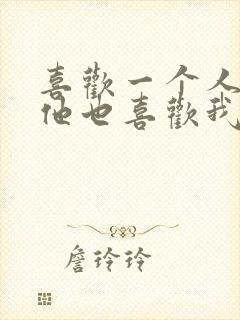 喜歡一个人
他也喜歡我
詹玲玲